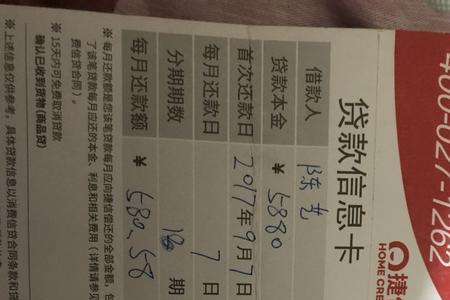 400-027-1262
捷
HOME CRE
贷款信息卡
借款人 陈艺
贷款本金 ￥ 5880
首次还款日 2017年9月7日
每月还款日 7 日
分期期数 期
每月还款额 ￥ 580.58
※ 每月还款额是您该笔贷款每月应向捷信偿还的全部金额，包
了该笔贷款每月应还的本金、利息和相关费用（详情请参见
费信贷合同）。
※ 15天内可免费取消贷款
确认已收到货物(商品贷)
※ 上述信息仅供参考，具体贷款信息以消费信贷合同条款和贷